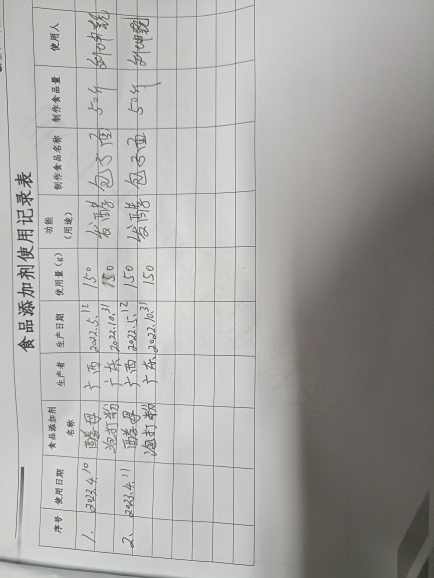 食品添加剂使用记录表
序号 使用日期 食品添加剂名称 生产者 生产日期 使用量(g) 功能(用途) 制作食品名称 制作食品量 使用人
1、 2023.4.10 酵母 广西 2022.5.12 150 发酵 包子面 50斤
泡打粉 广东 2022.10.31 150
2、 2023.4.11 酵母 广西 2022.5.12 150 发酵 包子面 50斤
泡打粉 广东 2022.10.31 150